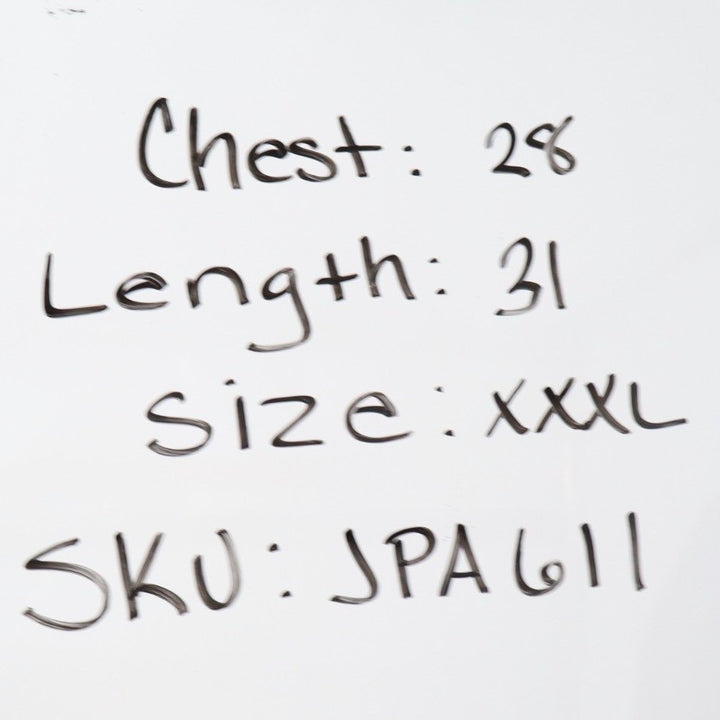 Chest: 28
Length: 31
Size: XXXL
SKU: JPA611